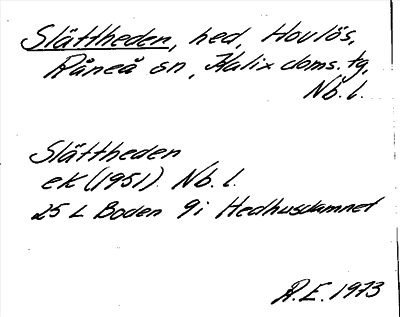 Slättheden, hed, Hovlös,
Råneå sn, Kalix doms. tg,
Nb. l.
Slättheden
ek (1951) Nb. l.
25 L Boden 9i Hedhusdamnet
R.E. 1973